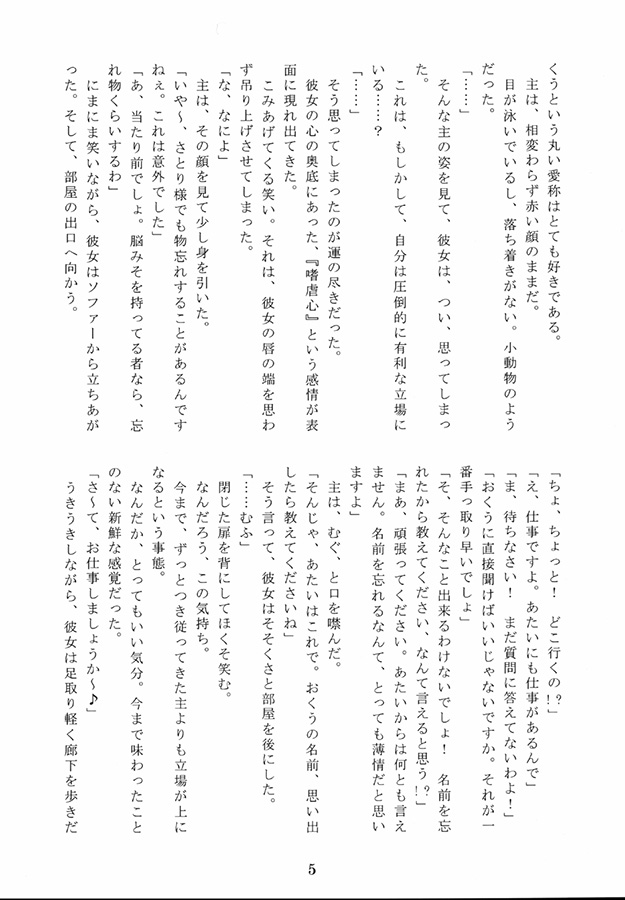 くうという丸い愛称はとても好きである。
　主は、相変わらず赤い顔のままだ。
　目が泳いでいるし、落ち着きがない。小動物のよう
だった。
「……」
　そんな主の姿を見て、彼女は、つい、思ってしまっ
た。
　これは、もしかして、自分は圧倒的に有利な立場に
いる……？
「……」
　そう思ってしまったのが運の尽きだった。
　彼女の心の奥底にあった、『嗜虐心』という感情が表
面に現れ出てきた。
　こみあげてくる笑い。それは、彼女の唇の端を思わ
ず吊り上げさせてしまった。
「な、なによ」
　主は、その顔を見て少し身を引いた。
「いや～、さとり様でも物忘れすることがあるんです
ねぇ。これは意外でした」
「あ、当たり前でしょ。脳みそを持ってる者なら、忘
れ物くらいするわ」
　にまにま笑いながら、彼女はソファーから立ちあが
った。そして、部屋の出口へ向かう。
「ちょ、ちょっと！　どこ行くの!?」
「え、仕事ですよ。あたいにも仕事があるんで」
「ま、待ちなさい！　まだ質問に答えてないわよ！」
「おくうに直接聞けばいいじゃないですか。それが一
番手っ取り早いでしょ」
「そ、そんなこと出来るわけないでしょ！　名前を忘
れたから教えてください、なんて言えると思う!?」
「まあ、頑張ってください。あたいからは何とも言え
ません。名前を忘れるなんて、とっても薄情だと思い
ますよ」
　主は、むぐ、と口を噤んだ。
「そんじゃ、あたいはこれで。おくうの名前、思い出
したら教えてくださいね」
　そう言って、彼女はそそくさと部屋を後にした。
「……むふ」
　閉じた扉を背にしてほくそ笑む。
　なんだろう、この気持ち。
　今まで、ずっとつき従ってきた主よりも立場が上に
なるという事態。
　なんだか、とってもいい気分。今まで味わったこと
のない新鮮な感覚だった。
「さ～て、お仕事しましょうか～♪」
　うきうきしながら、彼女は足取り軽く廊下を歩きだ
5